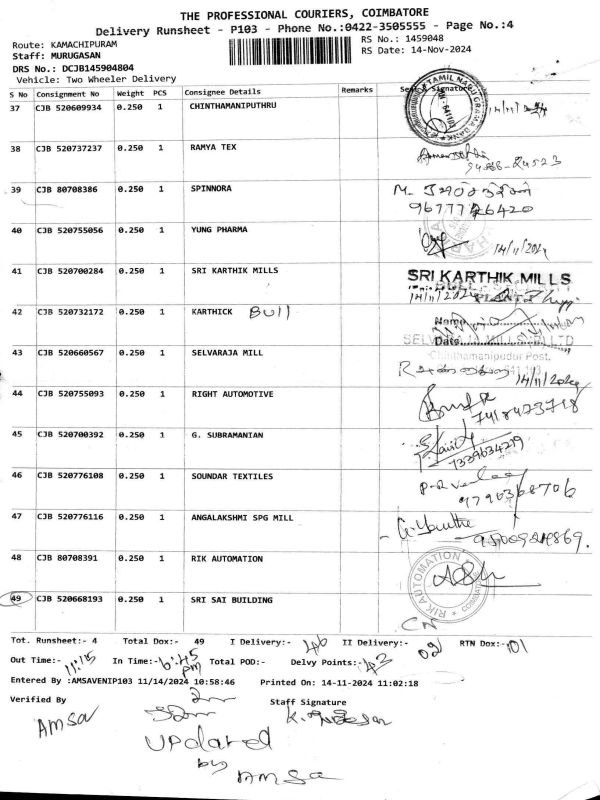 THE PROFESSIONAL COURIERS, COIMBATORE
Delivery Runsheet - P103 - Phone No.:0422-3505555 - Page No.:4
Route: KAMACHIPURAM
RS No.: 1459048
Staff: MURUGASAN
RS Date: 14-Nov-2024
DRS No.: DCJB145904804
Vehicle: Two Wheeler Delivery
S No Consignment No Weight PCS Consignee Details Remarks Signature
37 CJB 520609934 0.250 1 CHINTHAMANIPUTHRU
38 CJB 520737237 0.250 1 RAMYA TEX
94888-24523
39 CJB 80708386 0.250 1 SPINNORA M.
40 CJB 520755056 0.250 1 YUNG PHARMA 14/11/2024
41 CJB 520700284 0.250 1 SRI KARTHIK MILLS SRI KARTHIK MILLS
14/11/2024
42 CJB 520732172 0.250 1 KARTHICK Bull Name
Date
Chinthamanipudur Post.
43 CJB 520660567 0.250 1 SELVARAJA MILL 14/11/2024
44 CJB 520755093 0.250 1 RIGHT AUTOMOTIVE
7418473718
45 CJB 520700392 0.250 1 G. SUBRAMANIAN
7339634219
46 CJB 520776108 0.250 1 SOUNDAR TEXTILES
47 CJB 520776116 0.250 1 ANGALAKSHMI SPG MILL
48 CJB 80708391 0.250 1 RIK AUTOMATION RIK AUTOMATION
49 CJB 520668193 0.250 1 SRI SAI BUILDING
CN
Tot. Runsheet:- 4 Total Dox:- 49 I Delivery:- 46 II Delivery:- 02 RTN Dox:- 01
Out Time:- 11:15 In Time:- 6:45 pm Total POD:- Delvy Points:- 43
Entered By :AMSAVENIP103 11/14/2024 10:58:46 Printed On: 14-11-2024 11:02:18
Verified By Staff Signature
AMSA
Updated
by
AMSA